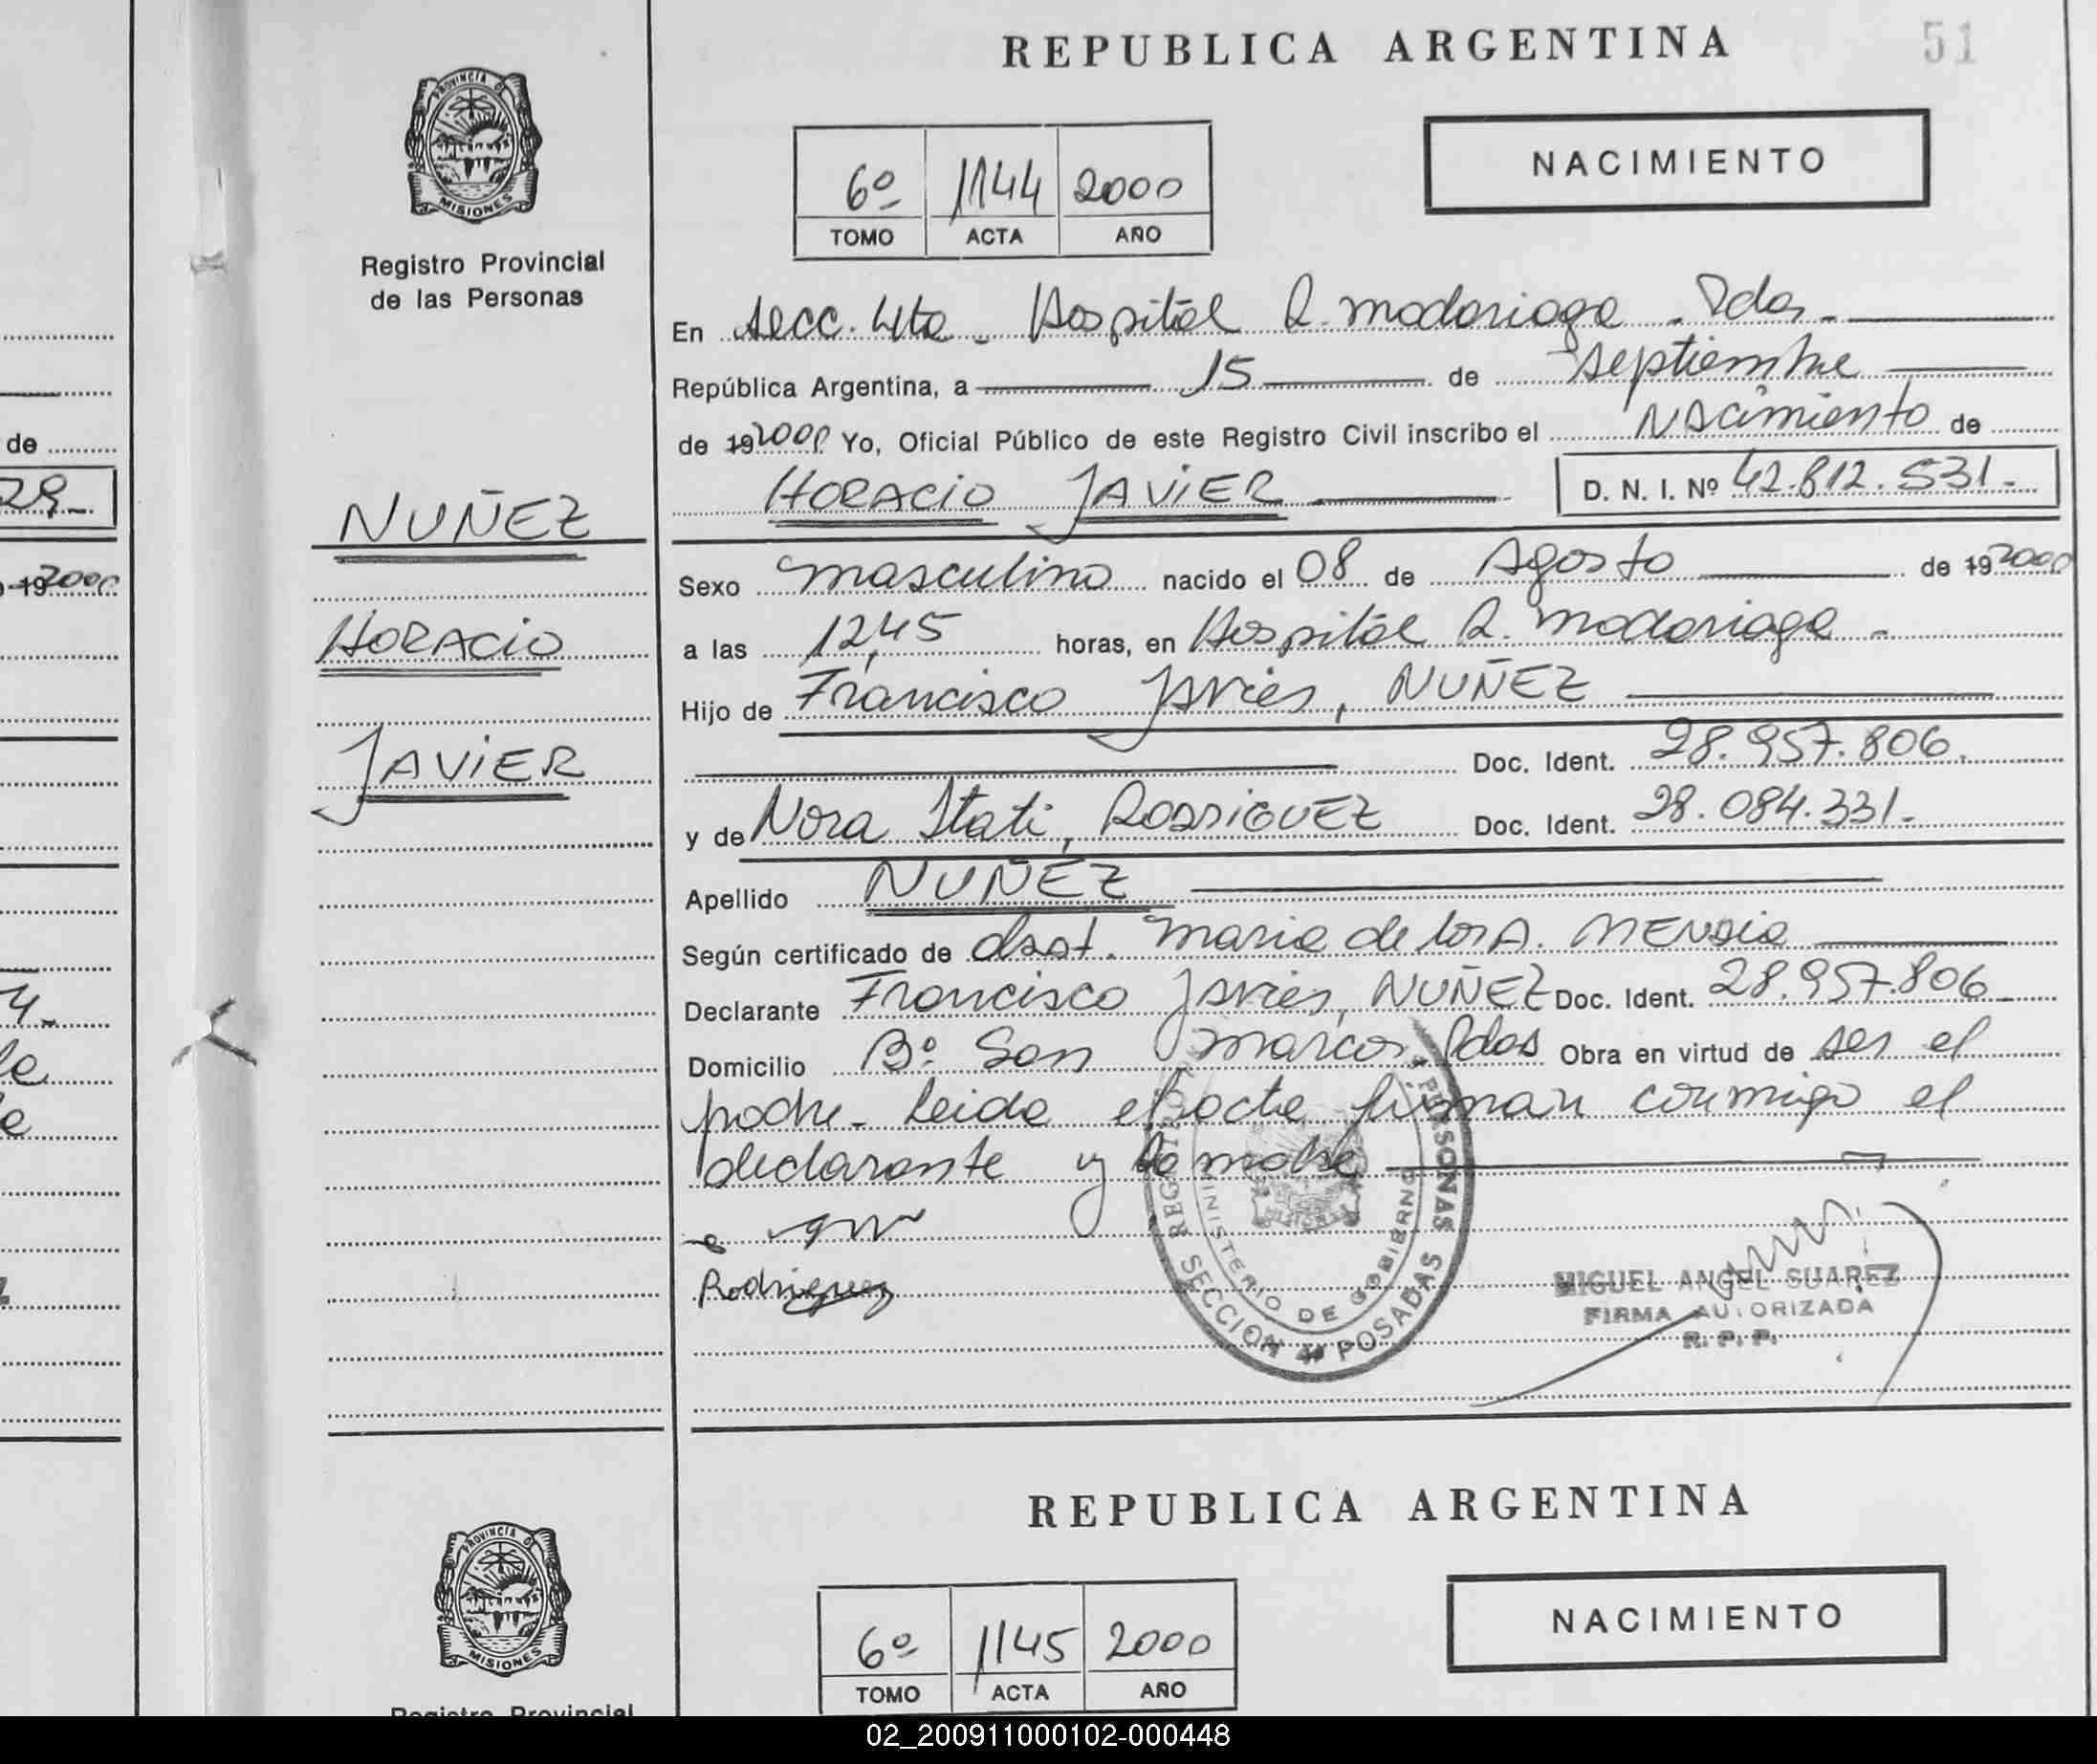 REPUBLICA ARGENTINA
51
PROVINCIA DE
MISIONES
Registro Provincial
de las Personas
6º 1144 2000
TOMO ACTA AÑO
NACIMIENTO
En Secc. 4ta - Hospital R. Madariaga - Pdas -
República Argentina, a 15 de septiembre
de 19 2000 Yo, Oficial Público de este Registro Civil inscribo el Nacimiento de
HORACIO JAVIER D. N. I. Nº 42.812.531.-
NUÑEZ
HORACIO
JAVIER
Sexo masculino nacido el 08 de Agosto de 19 2000
a las 12,45 horas, en Hospital R. Madariaga -
Hijo de Francisco Javier, NUÑEZ
Doc. Ident. 28.957.806.
y de Nora Itati, RODRIGUEZ Doc. Ident. 28.084.331-
Apellido NUÑEZ
Según certificado de obst. Maria de los A. MENDIA
Declarante Francisco Javier, NUÑEZ Doc. Ident. 28.957.806
Domicilio Bº San Marcos, Pdas Obra en virtud de ser el
padre - Leida el acta firman conmigo el
declarante y la madre
Rodriguez
PERSONAS
SECCION 4ª POSADAS
MINISTERIO DE GOBIERNO
MIGUEL ANGEL SUAREZ
FIRMA AUTORIZADA
R. P. P.
REPUBLICA ARGENTINA
PROVINCIA DE
MISIONES
6º 1145 2000
TOMO ACTA AÑO
NACIMIENTO
Registro Provincial
de
29-
19 2000
4.-
02_200911000102-000448